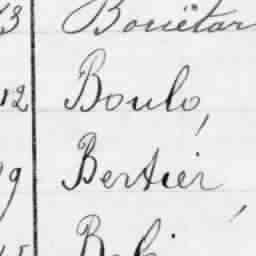 3 Bouëtar
12 Boulo,
9 Bertier,